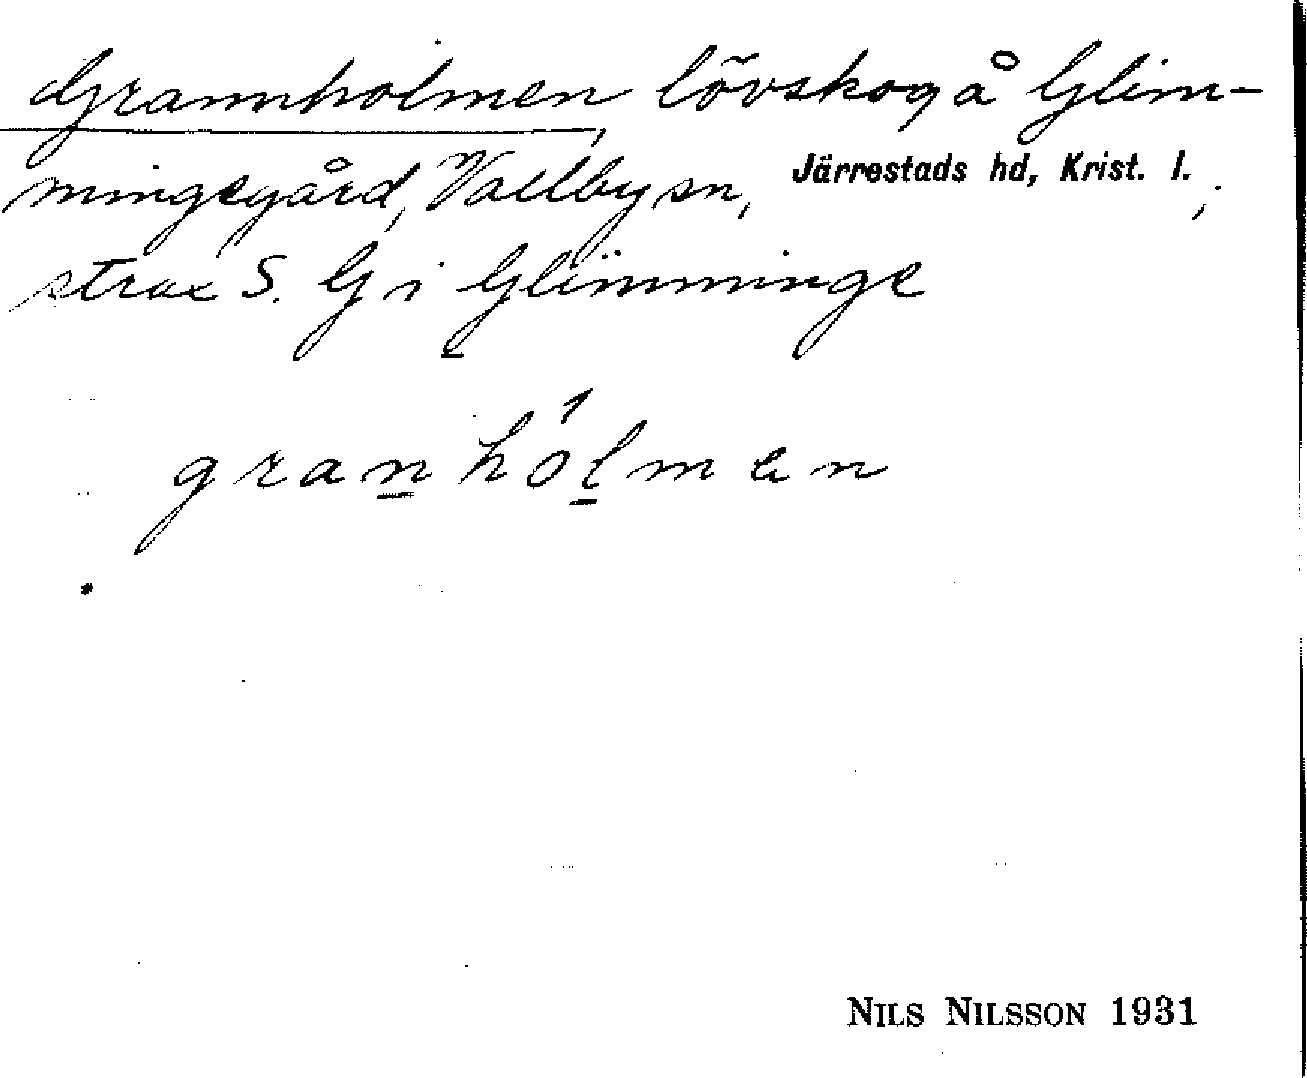 Grannholmen, lövskog å Glim-
mingegård, Vallby sn, Järrestads hd, Krist. l.,
strax S. G i Glimminge
granhólmen
NILS NILSSON 1931